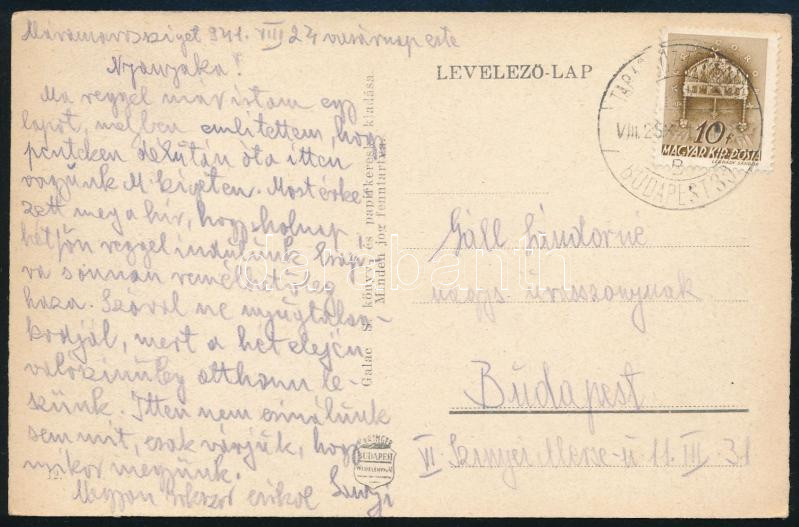 Máramarossziget 941. VIII 24 vasárnap este
Nyanyaka!
Ma reggel már irtam egy
lapot, melyben emlitettem, hogy
pénteken délután óta itten
vagyunk M. szigeten. Most érke-
zett meg a hir, hogy holnap
hétfőn reggel indulunk
va s onnan remélhetőleg
haza. Szóval ne nyugtalan-
kodjál, mert a hét elején
valószinüleg otthon le-
szünk. Itten nem csinálunk
semmit, csak várjuk, hogy
mikor megyünk.
Nagyon sokszor csókol
LEVELEZŐ-LAP
Galac S. könyv- és papirkereskedés kiadása
Minden jog fenntartva.
12.
BUDAPEST
VIII. 25
BUDAPEST
B
10 f
MAGYAR KIR. POSTA
Gáll Sándorné
nagys. úrasszonynak
Budapest
VI Szinyei Merse-u 11. III. 31
darabanth